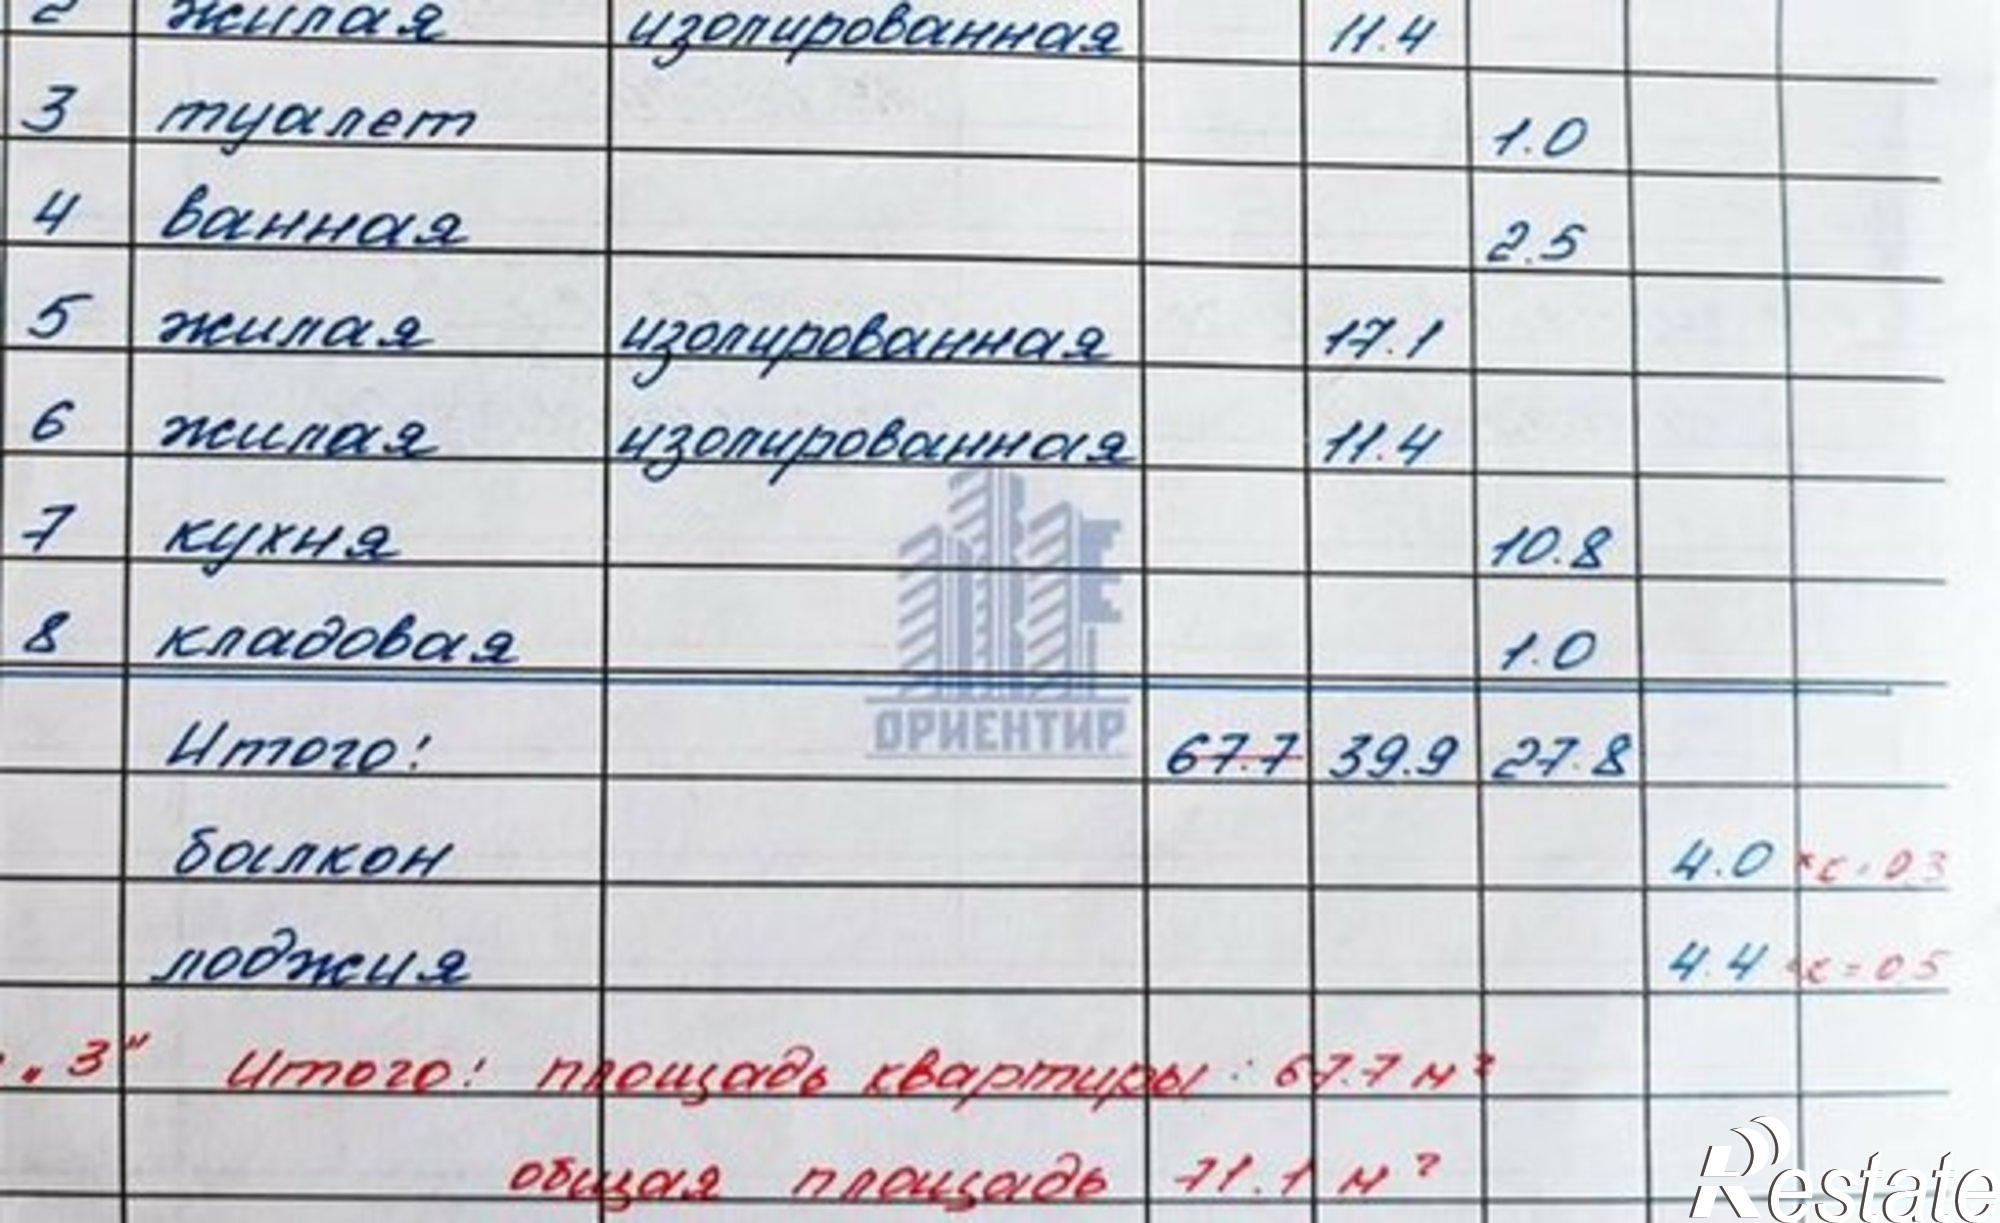 2 жилая изолированная 11.4
3 туалет 1.0
4 ванная 2.5
5 жилая изолированная 17.1
6 жилая изолированная 11.4
7 кухня 10.8
8 кладовая 1.0
ОРИЕНТИР
Итого: 67.7 39.9 27.8
балкон 4.0 к=0.3
лоджия 4.4 к=0.5
"3" Итого: площадь квартиры: 67.7 м²
общая площадь 71.1 м²
Restate